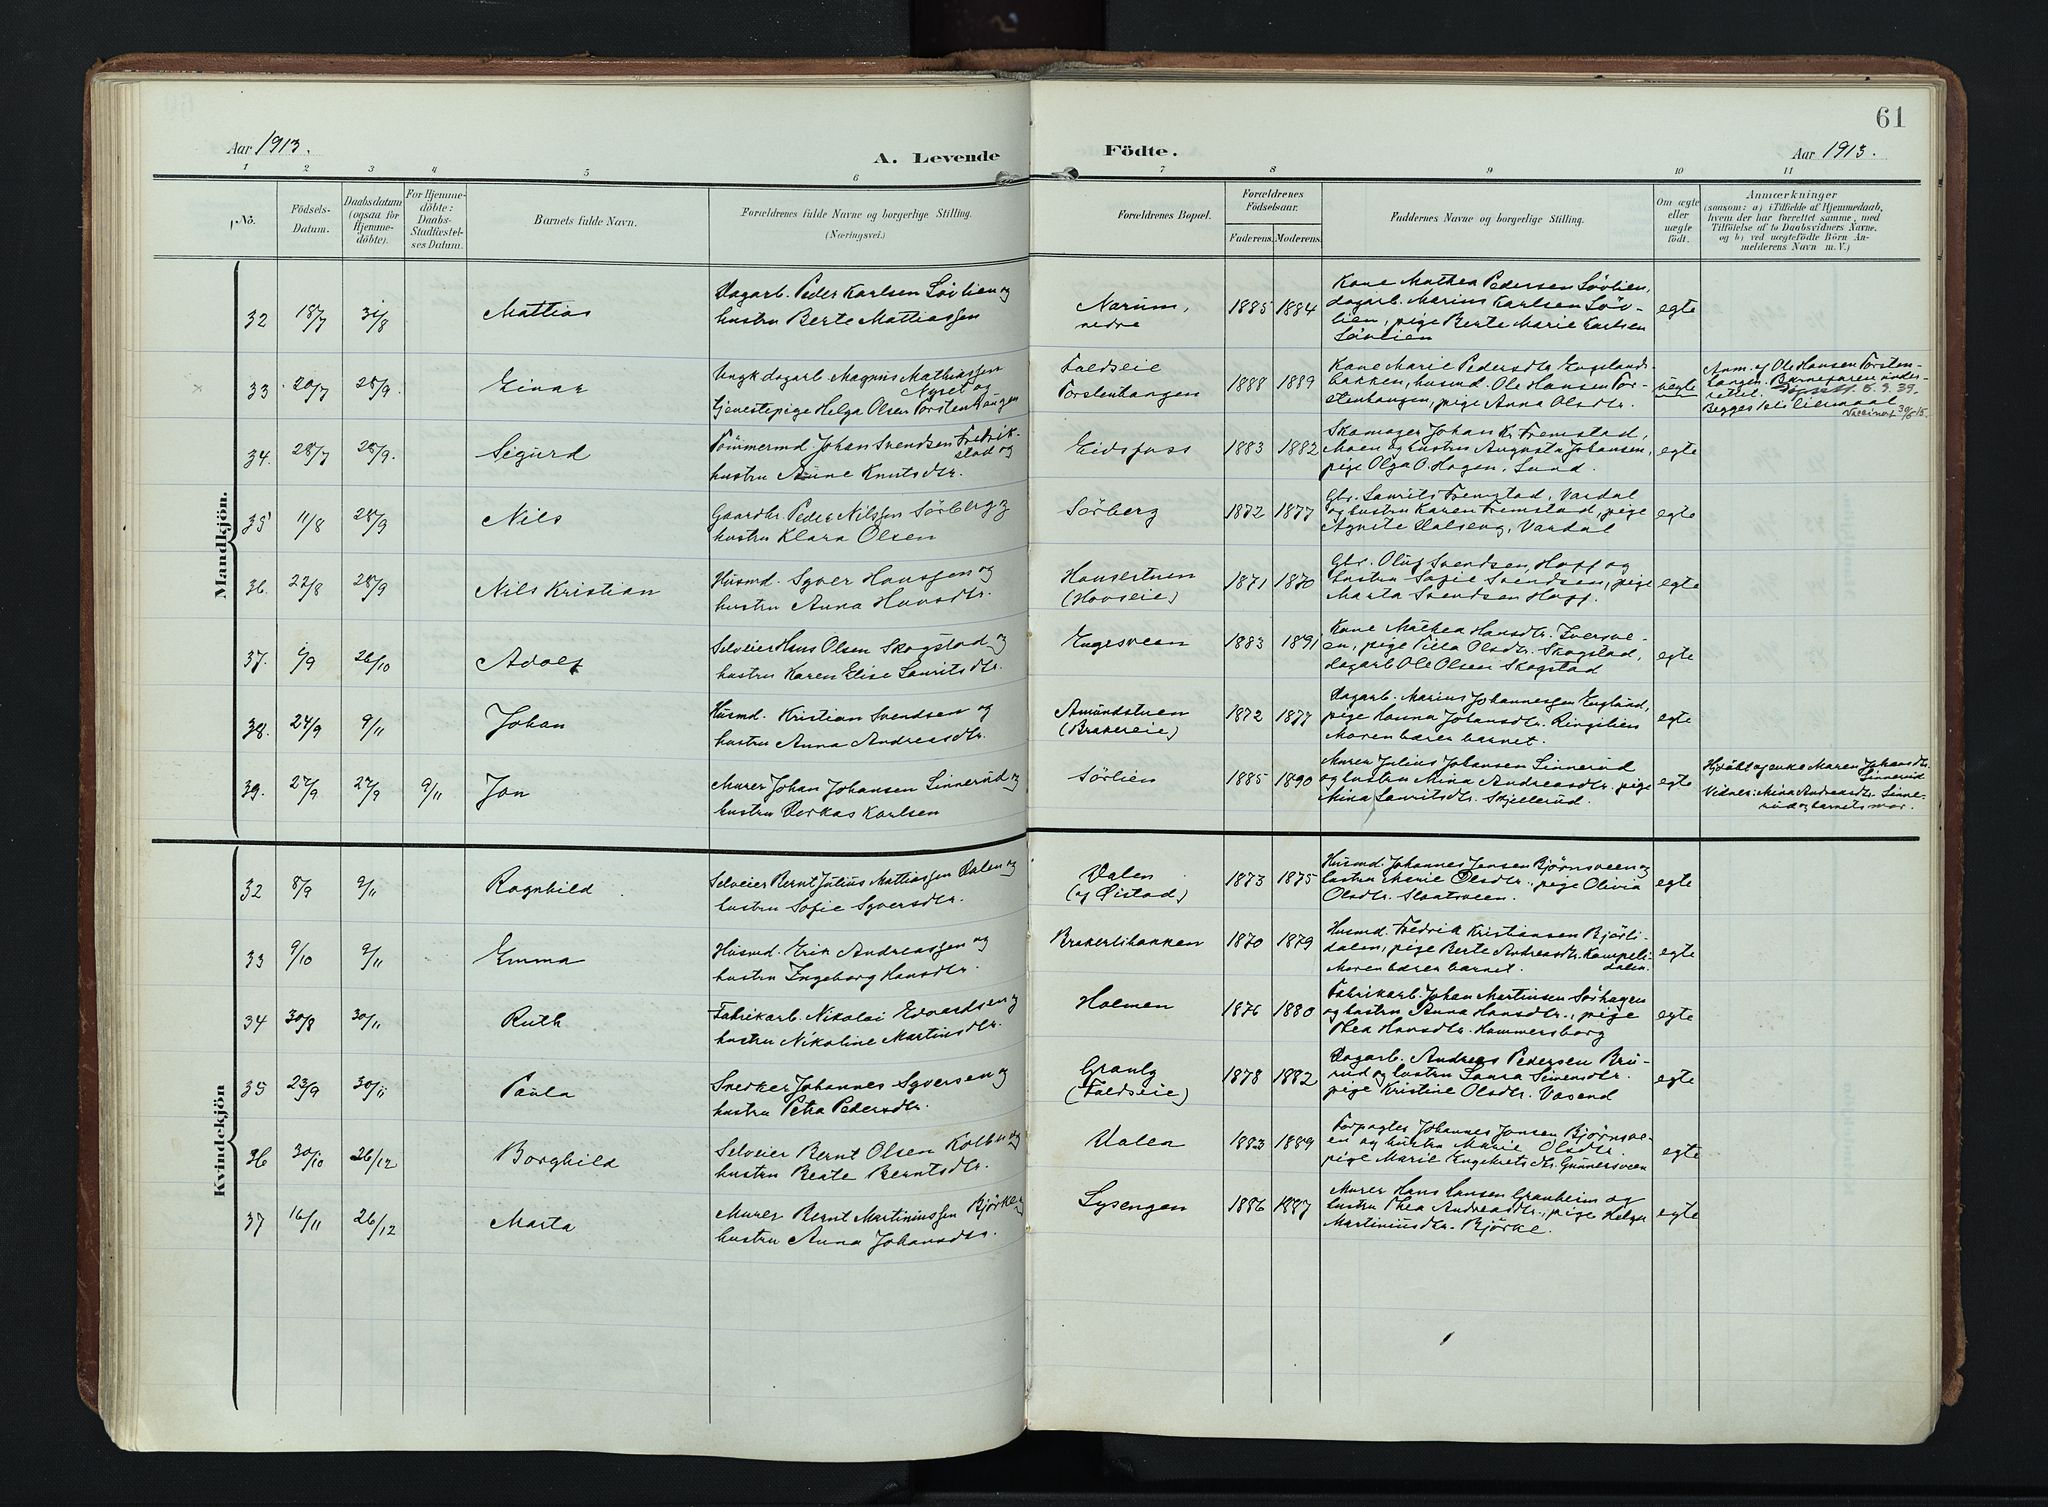 61
Aar 1913.
A. Levende
Födte.
Aar 1913.
1 2 3 4 5 6 7 8 9 10 11
No.
Födsels-
Datum.
Daabsdatum
(ogsaa for
Hjemme-
döbte).
For Hjemme-
döbte:
Daabs-
Stadfæstel-
ses Datum.
Barnets fulde Navn.
Forældrenes fulde Navne og borgerlige Stilling.
(Næringsvei.)
Forældrenes Bopæl.
Forældrenes
Födselsaar.
Faderens. Moderens.
Faddernes Navne og borgerlige Stilling.
Om ægte
eller
uægte
födt.
Anmærkninger
(saasom: a) i Tilfælde af Hjemmedaab,
hvem der har forrettet samme, med
Tilföielse af to Daabsvidners Navne,
og b) ved uægtefödte Börn An-
melderens Navn m. V.)
Mandkjön.
32 18/7 31/8 Mattias
Dagarb. Peder Karlsen Løvlien og
hustru Berte Mattiassen
Narum,
nedre
1885 1884
Kone Mathea Pedersen Løvlien,
dagarb. Marius Karlsen Løv-
lien, pige Berte Marie Karlsen
Løvlien
egte
33. 20/7 28/9. Einar
Ungk dagarb. Magnus Mathiassen
Nyset og
tjenestepige Helga Olsen Torstenhaugen
Faldseie
Torstenhaugen
1888 1889
Kone Marie Pedersdtr. Engelands-
bakken, husmd. Ole Hansen Tor-
stenhaugen, pige Anna Olsdtr.
uegte
Anm. af Ole Hansen Torsten-
haugen. Barnefaren under-
rettet. 6.9.39.
Begges 1ste leiermaal
Vaccineret
34. 28/7 28/9. Sigurd
Tømmermd. Johan Svendsen Fredrik-
stad og
hustru Anne Knutsdtr.
Eidsfoss
1883 1882
Skomager Johan Kr. Fremstad,
Moen og hustru Augusta Johansen,
pige Olga O. Hagen, Lund.
egte
35 11/8 28/9 Nils
Gaardbr. Peder Nilssen Sørberg og
hustru Klara Olsen
Sørberg
1872 1877
Gbr. Laurits Fremstad, Vardal
og hustru Karen Fremstad, pige
Agnete Dalseng, Vardal
egte
36. 22/8 28/9 Nils Kristian
Husmd. Syver Hanssen og
hustru Anna Hansdtr.
Hansestuen
(Hovseie)
1871 1870
Gbr. Oluf Svendsen, Hoff og
hustru Sofie Svendsen, pige
Marta Svendsen Hoff.
egte
37. 6/9 26/10 Adolf
Selveier Hans Olsen Skogstad og
hustru Karen Elise Lauritsdtr.
Engesveen
1883 1891
Kone Mathea Hansdtr. Iversve-
en, pige Tilla Olsdtr. Skogstad,
dagarb Ole Olsen Skogstad
egte
38. 24/9 9/11 Johan
Husmd. Kristian Svendsen og
hustru Anna Andreasdtr.
Amundstuen
(Brakereie)
1872 1877
Dagarb. Marius Johannessen Englund,
pige Hanna Johansdtr. Ringelien
Moren bærer barnet.
egte
39. 27/9 27/9 9/11 Jon
Murer Johan Johansen Linnerud og
hustru Dorkas Karlsen
Sørlien
1885 1890
Murer Julius Johansen Linnerud
og hustru Mina Andreasdtr. pige
Mina Lauritsdtr. Skjellerud.
egte
Hjdøbt af enke Maren Johansdtr.
Linnerud
Vidner: Mina Andreasdtr. Linne-
rud og barnets mor.
Kvindekjön
32 8/9 9/11 Ragnhild
Selveier Bernt Julius Mathiassen Dalen og
hustru Sofie Syversdtr.
Dalen
(af Øistad)
1873 1875
Husmd. Johannes Jensen Bjørnsveen og
hustru Marie Olsdtr., pige Olivia
Olsdtr. Slaatsveen.
egte
33 9/10 9/11 Emma
Husmd. Erik Andreassen og
hustru Ingeborg Hansdtr.
Brakerlibakken
1870 1879
Husmd. Fredrik Kristiansen Bjørli-
dalen, pige Berte Andreasdtr. Kampeli-
dalen.
Moren bærer barnet.
egte
34 30/8 30/11 Ruth
Fabrikarb. Nikolai Edvardsen og
hustru Nikoline Martinsdtr.
Holmen
1876 1880
Fabrikarb. Johan Martinsen Sørhagen
og hustru Anna Hansdtr., pige
Thea Hansdtr. Hammersborg
egte
35 23/9 30/11 Paula
Snedker Johannes Syversen og
hustru Petra Pedersdtr.
Granly
(Faldseie)
1878 1882
Dagarb. Andreas Pedersen Bru-
rud og hustru Laura Simensdtr.
pige Kristine Olsdtr. Vasend
egte
36 30/10 26/12 Borghild
Selveier Bernt Olsen Kolbu og
hustru Beate Berntsdtr.
Dalen
1883 1889
Forpagter Johannes Jonsen Bjørnsve-
en og hustru Marie Olsdtr.
pige Marie Engebretsdtr. Gunnersveen
egte
37 16/11 26/12 Marta
Murer Bernt Martiniussen Bjørke og
hustru Anna Johansdtr.
Lysengen
1886 1887
Murer Hans Hansen Granheim og
hustru Thea Andreasdtr., pige Helga
Martiniusdtr. Bjørke.
egte